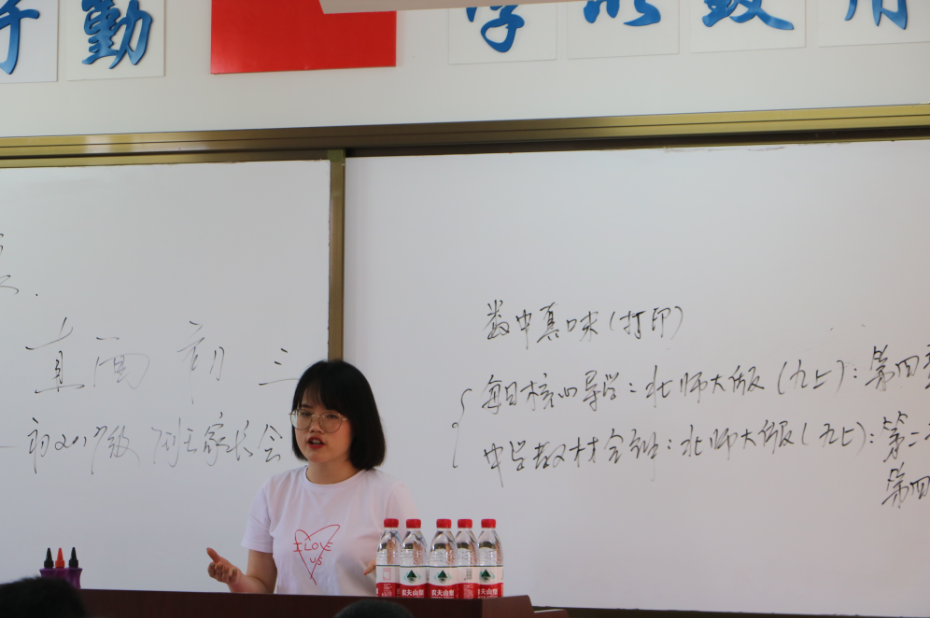 勤
学
直面初三
初2017级 7班家长会
数中真味(打印)
每日核心导学:北师大版(九上):第四章
中学教材全解:北师大版(九上):第二
第四
I LOVE
YS
农夫山泉
农夫山泉
农夫山泉